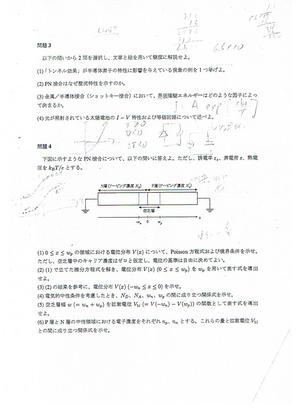 問題 3
以下の問いから 2 問を選択し，文章と絵を用いて簡潔に解説せよ。
(1)「トンネル効果」が半導体素子の特性に影響を与えている現象の例を 1 つ挙げよ。
(2) PN 接合はなぜ整流特性を示すのか。
(3) 金属／半導体接合（ショットキー接合）において，界面障壁エネルギーはどのような因子によって決まるか。
(4) 光が照射されている太陽電池の I - V 特性および等価回路について述べよ。
問題 4
下図に示すような PN 接合について，以下の問いに答えよ。ただし，誘電率 εs，素電荷 e，熱電圧を kBT/e とする。
N層(ドーピング濃度 ND) P層(ドーピング濃度 NA)
空乏層
(1) 0 ≤ x ≤ wp の領域における電位分布 V(x) について，Poisson 方程式および境界条件を示せ。ただし，空乏層中のキャリア濃度はゼロと仮定し，電位の基準は自由に決めてよい。
(2) (1) で立てた微分方程式を解き，電位分布 V(x) (0 ≤ x ≤ wp) を wp を用いて表す式を導出せよ。
(3) (2) の結果を参考に，電位分布 V(x) (-wn ≤ x ≤ 0) を示せ。
(4) 電気的中性条件を考慮したとき，ND，NA，wn，wp の間に成り立つ関係式を示せ。
(5) 空乏層幅 w (= wn + wp) を拡散電位 Vbi (= V(-wn) - V(wp)) の関数として表す式を導出せよ。
(6) P 層と N 層の中性領域における電子濃度をそれぞれ np，nn とする。これらの量と拡散電位 Vbi との間に成り立つ関係式を示せ。